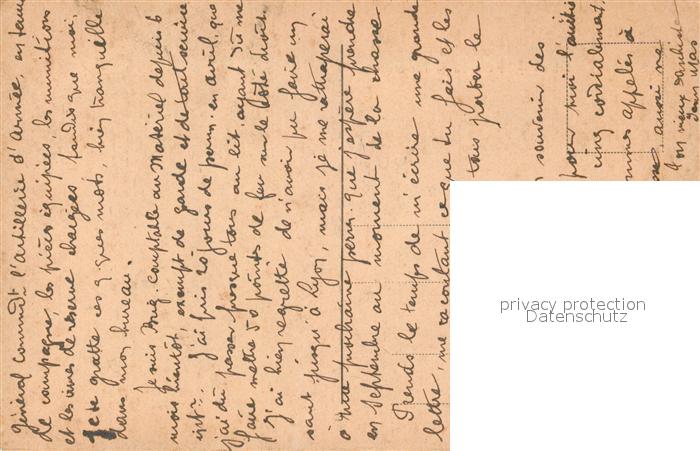 général Commdt l'artillerie d'Armée, en tenue
de campagne les pièces équipées, les munitions
et les vivres de réserve chargées, tandis que moi,
je te gratte ces qques mots, bien tranquille
dans mon bureau.
Je suis Brig. comptable au Matériel depuis 6
mois bientôt, exempt de garde et de tout service
J'ai pris 20 jours de perm. en avril, que
j'ai dû passer presque tous au lit, ayant dû me
faire mettre 50 points de feu sur le côté droit
J'ai bien regretté de n'avoir pu faire un
saut jusqu'à Lyon, mais je me rattraperai
à une prochaine perm, que j'espère prendre
en septembre au moment de la chasse
Prends le temps de m'écrire une grande
lettre, me racontant ce que tu fais et les
tous porter le
souvenir des
pour moi l'amitié
cinq cordialement,
appelés à
aussi
Ton vieux
privacy protection
Datenschutz